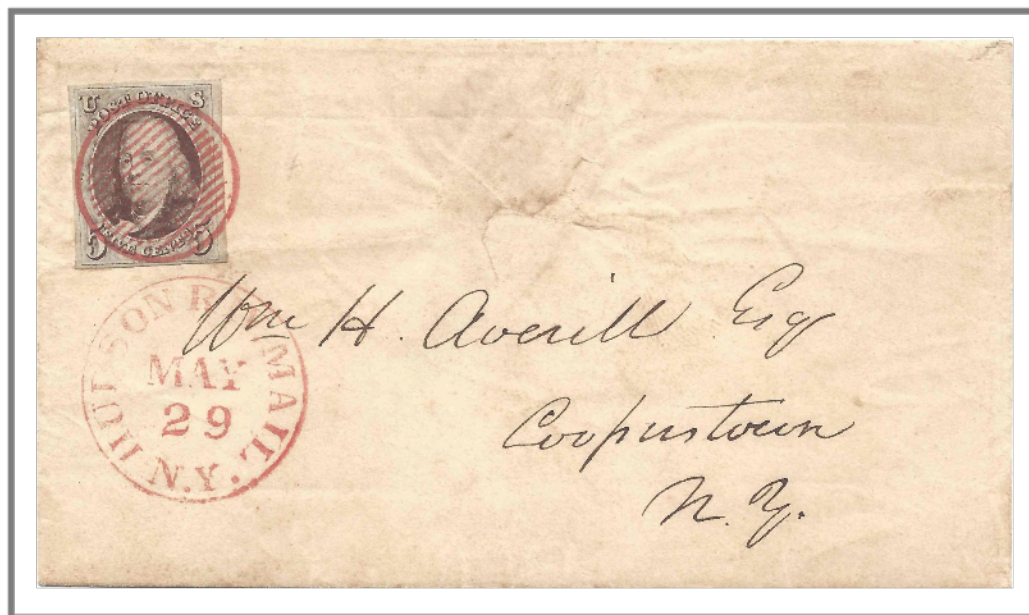 U S
POST OFFICE
FIVE CENTS
5 5
HUDSON RIV. MAIL
MAY
29
N.Y.
Wm H. Averill Esq
Cooperstown
N.Y.